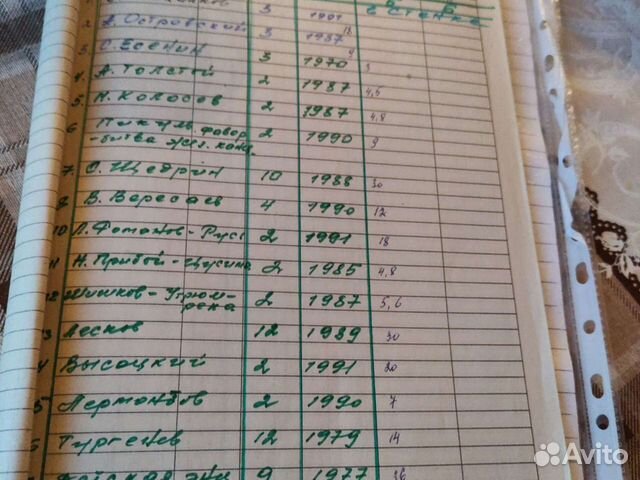 3 1991 в Стенке
Островский 3 1987 18
3 С. Есенин 3 1970 9
4 А. Толстой 2 1987 3
5. Н. Колосов 2 1987 4,5
6 Пикуль. фавор. 2 1990 4,8
-битва жел. канц. 9
7. С. Щедрин 10 1988 30
8 В. Вересаев 4 1990 12
10 Л. Фоманов - Русь 2 1991 18
11 Н. Прибой - Цусима 2 1985 4,8
12 Шишков - Угрюм- 2 1987 5,6
река
3 Лесков 12 1989 30
4 Высоцкий 2 1991 20
5 Лермонтов 2 1990 7
6 Тургенев 12 1979 14
9 1977 36
Avito